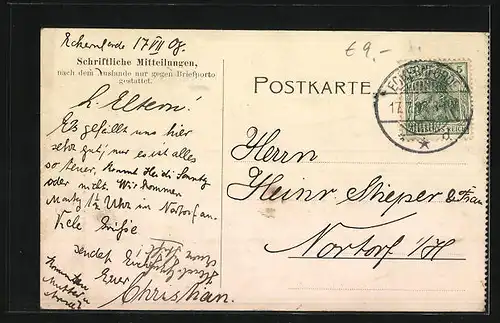 Eckernförde 17 VII 08.
Schriftliche Mitteilungen,
nach dem Auslande nur gegen Briefporto
gestattet.
L. Eltern!
Es gefällt uns hier
sehr gut, nur es ist alles
so teuer, kommt Heidi
oder nicht. Wir kommen
1½ Uhr in Nortorf an.
Viele Grüße
sendet
Euer
Christian.
Kommt
Mutter
€ 9,-
POSTKARTE
ECKERNFÖRDE
17.7.
Herrn
Heinr. Stieper & Frau
Nortorf i/H